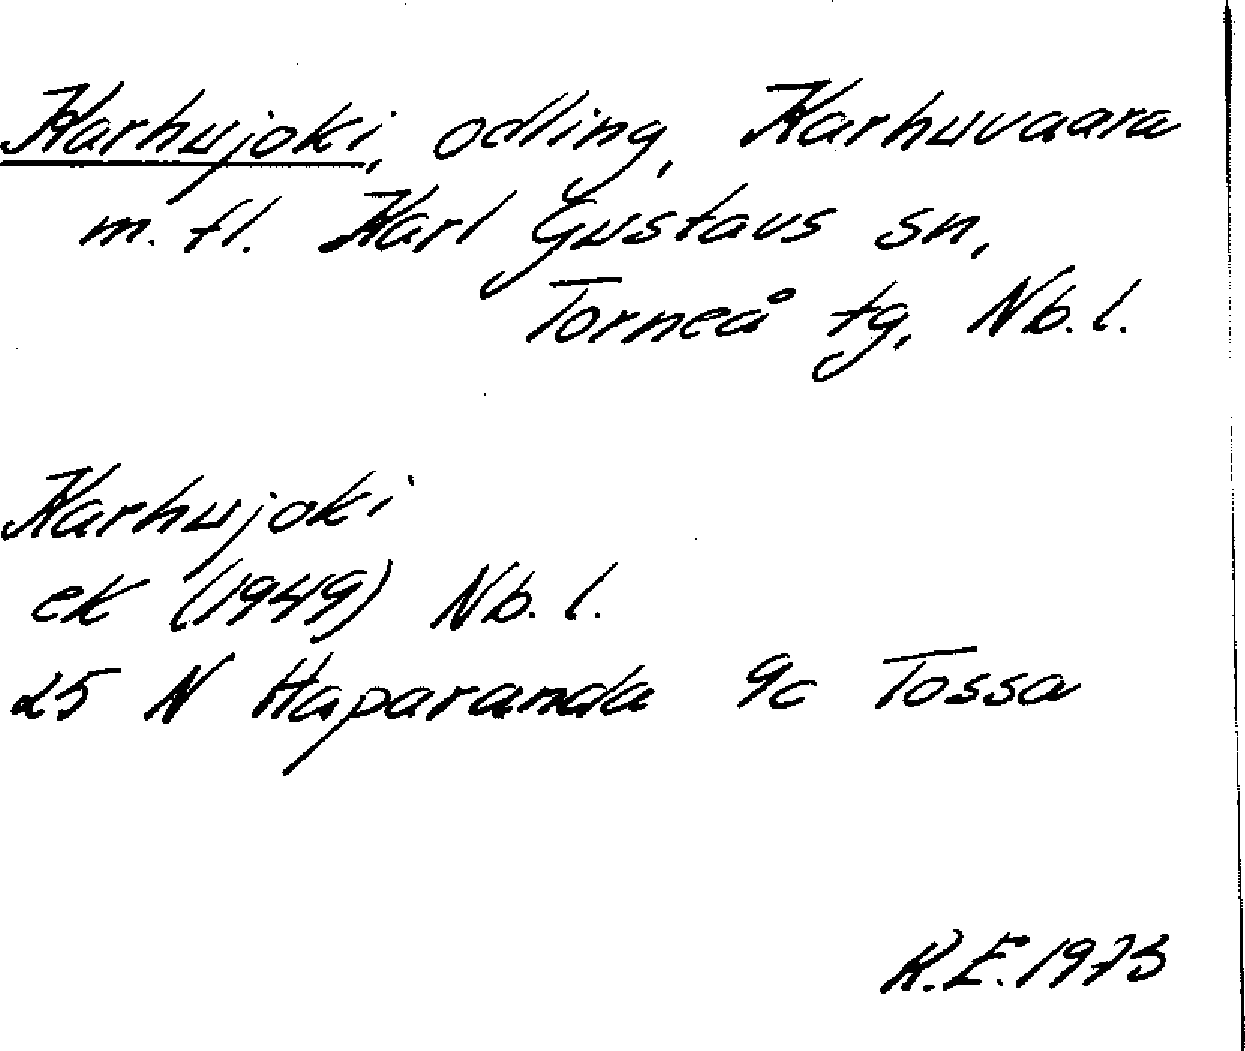 Karhujoki, odling, Karhuvaara
m. fl. Karl Gustavs sn,
Torneå tg, Nb. l.
Karhujoki
ek (1949) Nb. l.
25 N Haparanda 9c Tossa
K.E. 1973